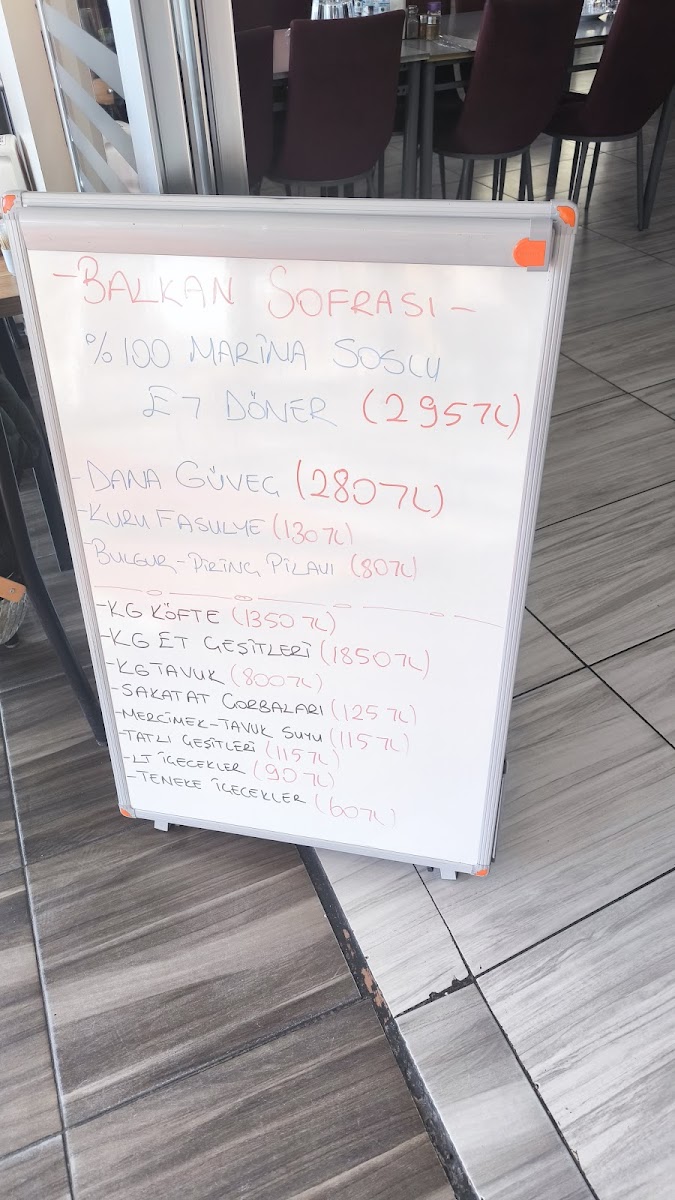 -BALKAN SOFRASI-
%100 MARİNA SOSLU
ET DÖNER (295TL)
-DANA GÜVEÇ (280TL)
-KURU FASULYE (130TL)
-BULGUR-PİRİNÇ PİLAVI (80TL)
-KG KÖFTE (1350TL)
-KG ET ÇEŞİTLERİ (1850TL)
-KG TAVUK (800TL)
-SAKATAT ÇORBALARI (125TL)
-MERCİMEK-TAVUK SUYU (115TL)
-TATLI ÇEŞİTLERİ (115TL)
-LT İÇECEKLER (90TL)
-TENEKE İÇECEKLER (60TL)